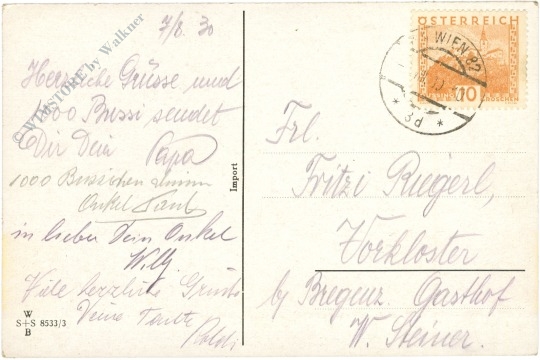 7/8. 30
Herzliche Grüsse und
1000 Bussi sendet
Dir Dein Papa
1000 Bussichen
Onkel
in lieber Dein Onkel
Willy
Viele herzliche Grüsse
Deine Tante
Poldi
W
S+S 8533/3
B
Import
© WIENSTORE by Walkner
ÖSTERREICH
10 10
GROSCHEN
WIEN 82
* 3d *
Frl.
Fritzi Riegerl,
Vorkloster
bei Bregenz. Gasthof
W. Steiner.